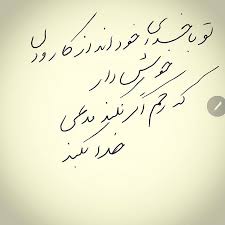 تو با خدای خود انداز کار و دل
خوش دار
که رحم اگر نکند مدعی
خدا بکند